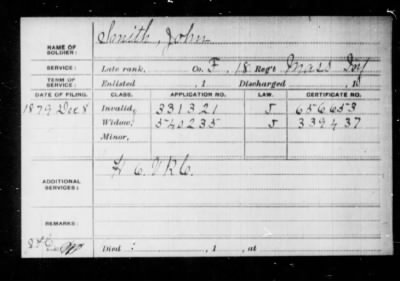 NAME OF SOLDIER: Smith, John
SERVICE: Late rank, Co. F, 18 Reg't Mass Inf
TERM OF SERVICE: Enlisted , 1 Discharged , 1
DATE OF FILING. CLASS. APPLICATION NO. LAW. CERTIFICATE NO.
1879 Dec 8 Invalid, 331321 J 656653
Widow, 540235 J 339437
Minor,
ADDITIONAL SERVICES: H C V R C
REMARKS:
Died : , 1 , at